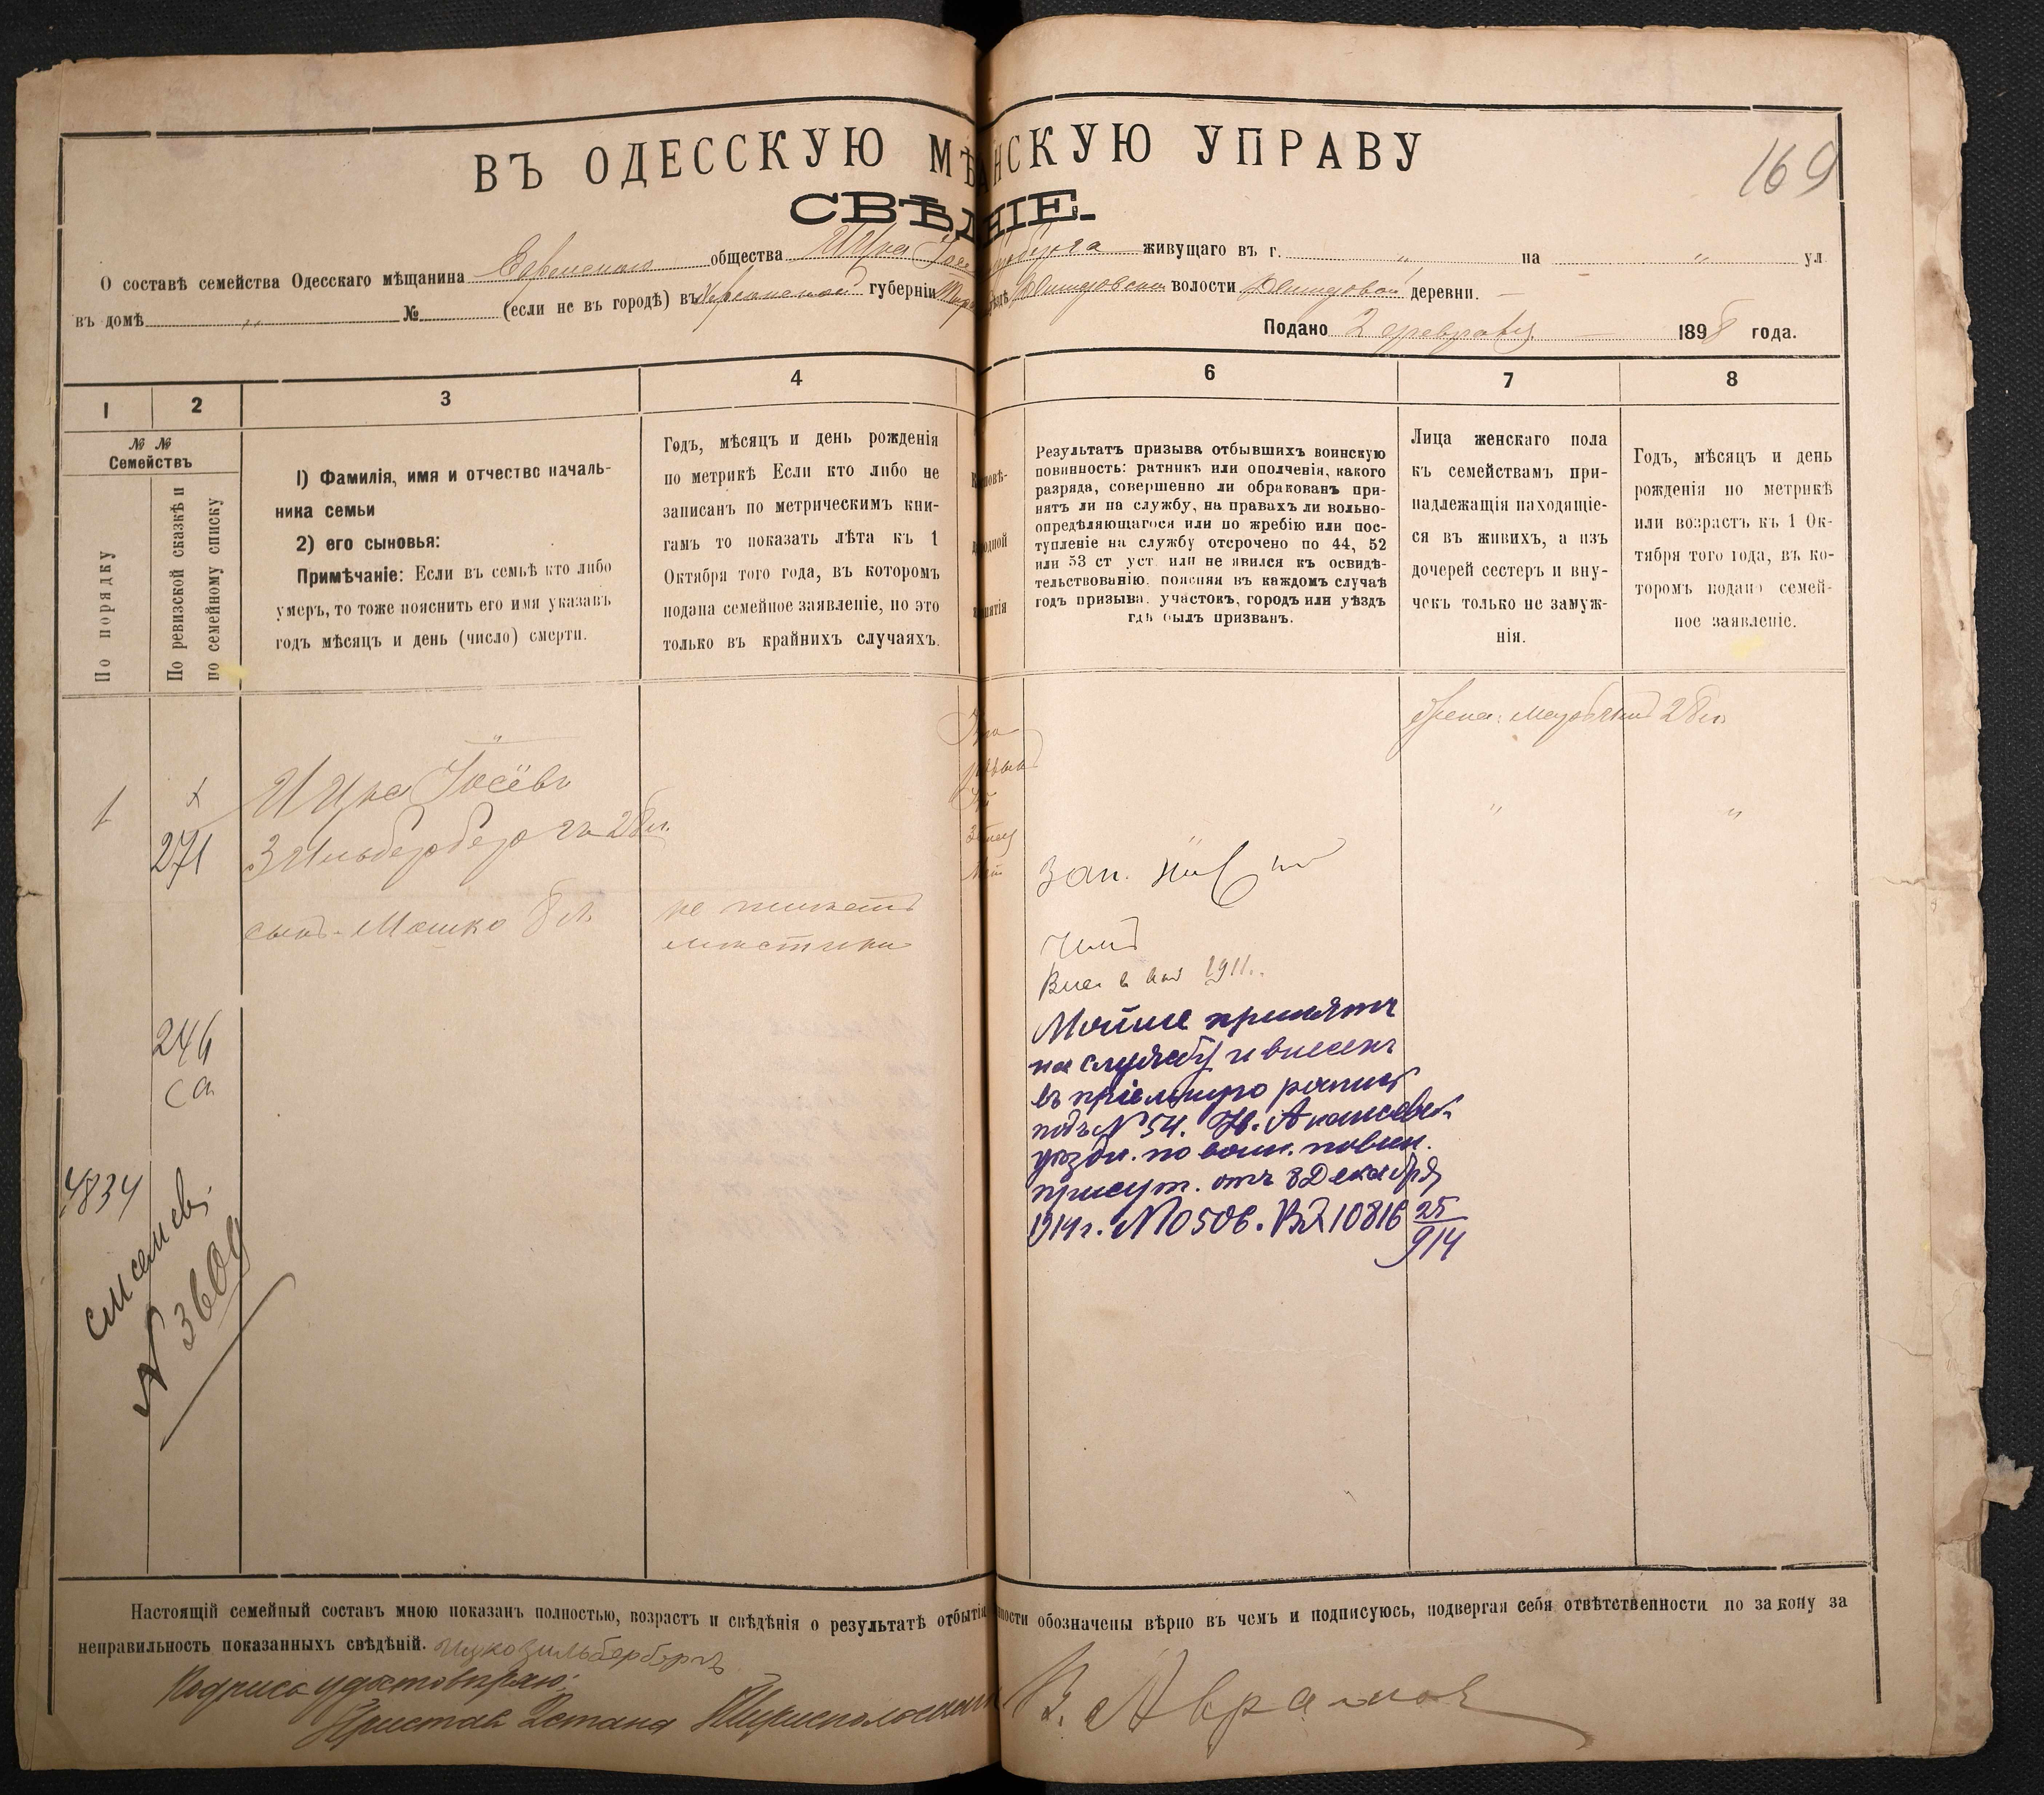 169
ВЪ ОДЕССКУЮ МѢ НСКУЮ УПРАВУ
СВѢД НІЕ.
О составѣ семейства Одесскаго мѣщанина Еврейскаго общества Ицка живущаго въ г. „ на „ ул
въ домѣ „ № (если не въ городѣ) въ Херсонской губерніи волости деревни.
Подано 2 февраля 1898 года.
1 2 3 4 6 7 8
№ №
Семействъ
По порядку
По ревизской сказкѣ и
по семейному списку
1) Фамилія, имя и отчество началь-
ника семьи
2) его сыновья:
Примѣчаніе: Если въ семьѣ кто либо
умеръ, то тоже пояснить его имя указавъ
годъ мѣсяцъ и день (число) смерти.
Годъ, мѣсяцъ и день рожденія
по метрикѣ Если кто либо не
записанъ по метрическимъ кни-
гамъ то показать лѣта къ 1
Октября того года, въ которомъ
подана семейное заявленіе, но это
только въ крайнихъ случаяхъ.
Результатъ призыва отбывшихъ воинскую
повинность: ратникъ или ополченія, какого
разряда, совершенно ли обракованъ при-
нятъ ли на службу, на правахъ ли вольно-
опредѣляющагося или по жребію или пос-
тупленіе на службу отсрочено по 44, 52
или 53 ст уст или не явился къ освидѣ-
тельствованію, поясняя въ каждомъ случаѣ
годъ призыва, участокъ, городъ или уѣздъ
гдѣ былъ призванъ.
Лица женскаго пола
къ семействамъ при-
надлежащія находящіе-
ся въ живихъ, а изъ
дочерей сестеръ и вну-
чекъ только не замуж-
нія.
Годъ, мѣсяцъ и день
рожденія по метрикѣ
или возрастъ къ 1 Ок-
тября того года, въ ко-
торомъ подано семей-
ное заявленіе.
28 л
1
271
Ицка Іосёвъ
Зильбербергъ 28 л.
„ „
сынъ Мошко 8 л
не
метрики
Зап.
1911.
Мойше принятъ
на службу и внесенъ
въ пріемную роспись
подъ № 54. Н. Ананьевск.
уѣздн. по воин. повин.
присут. отъ 8 Декабря
1914 г. № 10506. Вх 10816 25/914
246
са
4834
см семейн.
№ 3609
Настоящій семейный составъ мною показанъ полностью, возрастъ и свѣдѣнія о результатѣ отбытія ности обозначены вѣрно въ чемъ и подписуюсь, подвергая себя отвѣтственности по закону за
неправильность показанныхъ свѣдѣній. Ицко Зильбербергъ
Подпись удостовѣряю:
Приставъ 2 стана Тираспольскаго В. Аврамов